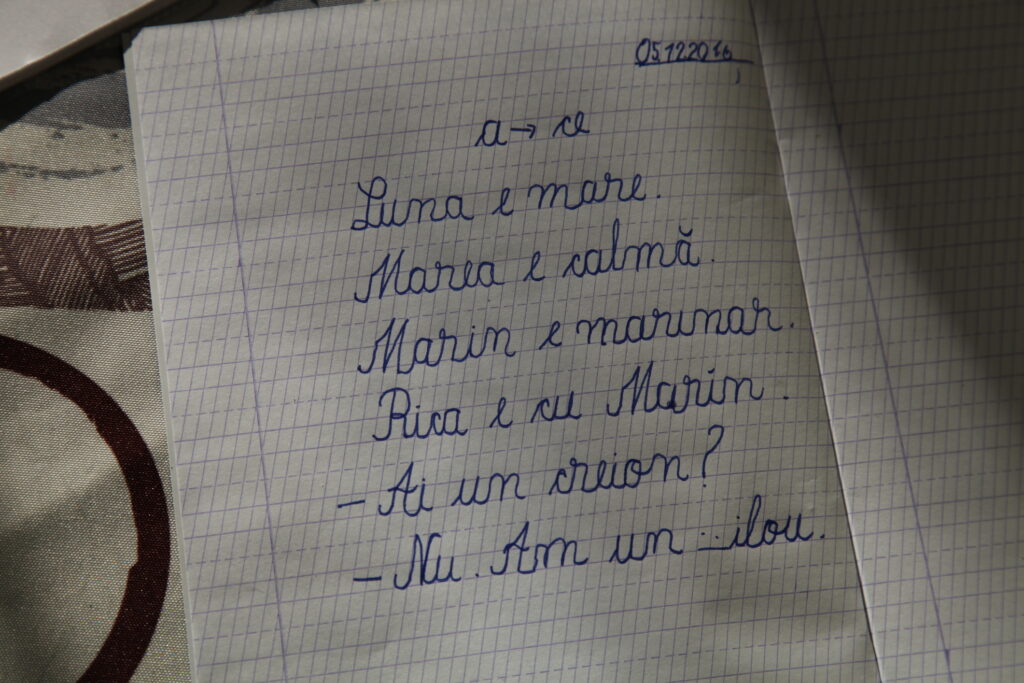 05.12.2016
a → ce
Luna e mare.
Marea e calmă.
Marin e marinar.
Rica e cu Marin.
- Ai un creion?
- Nu. Am un _ilou.